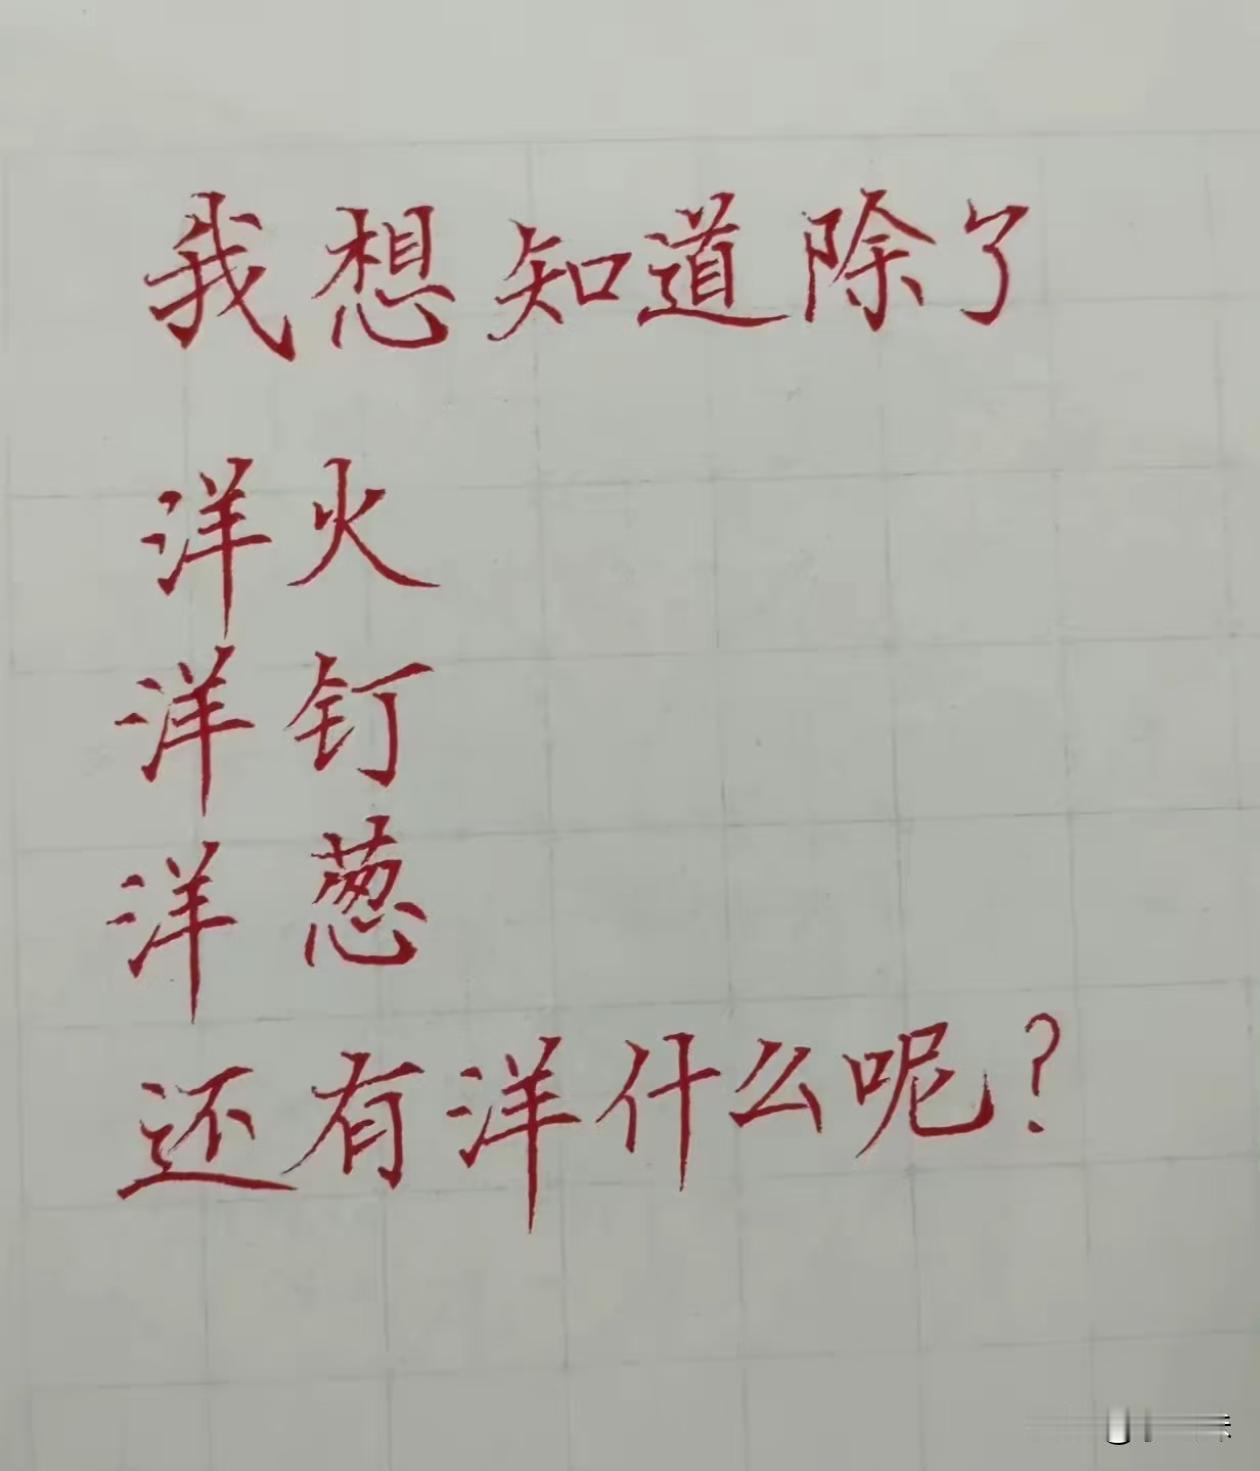 我想知道除了
洋火
洋钉
洋葱
还有洋什么呢？